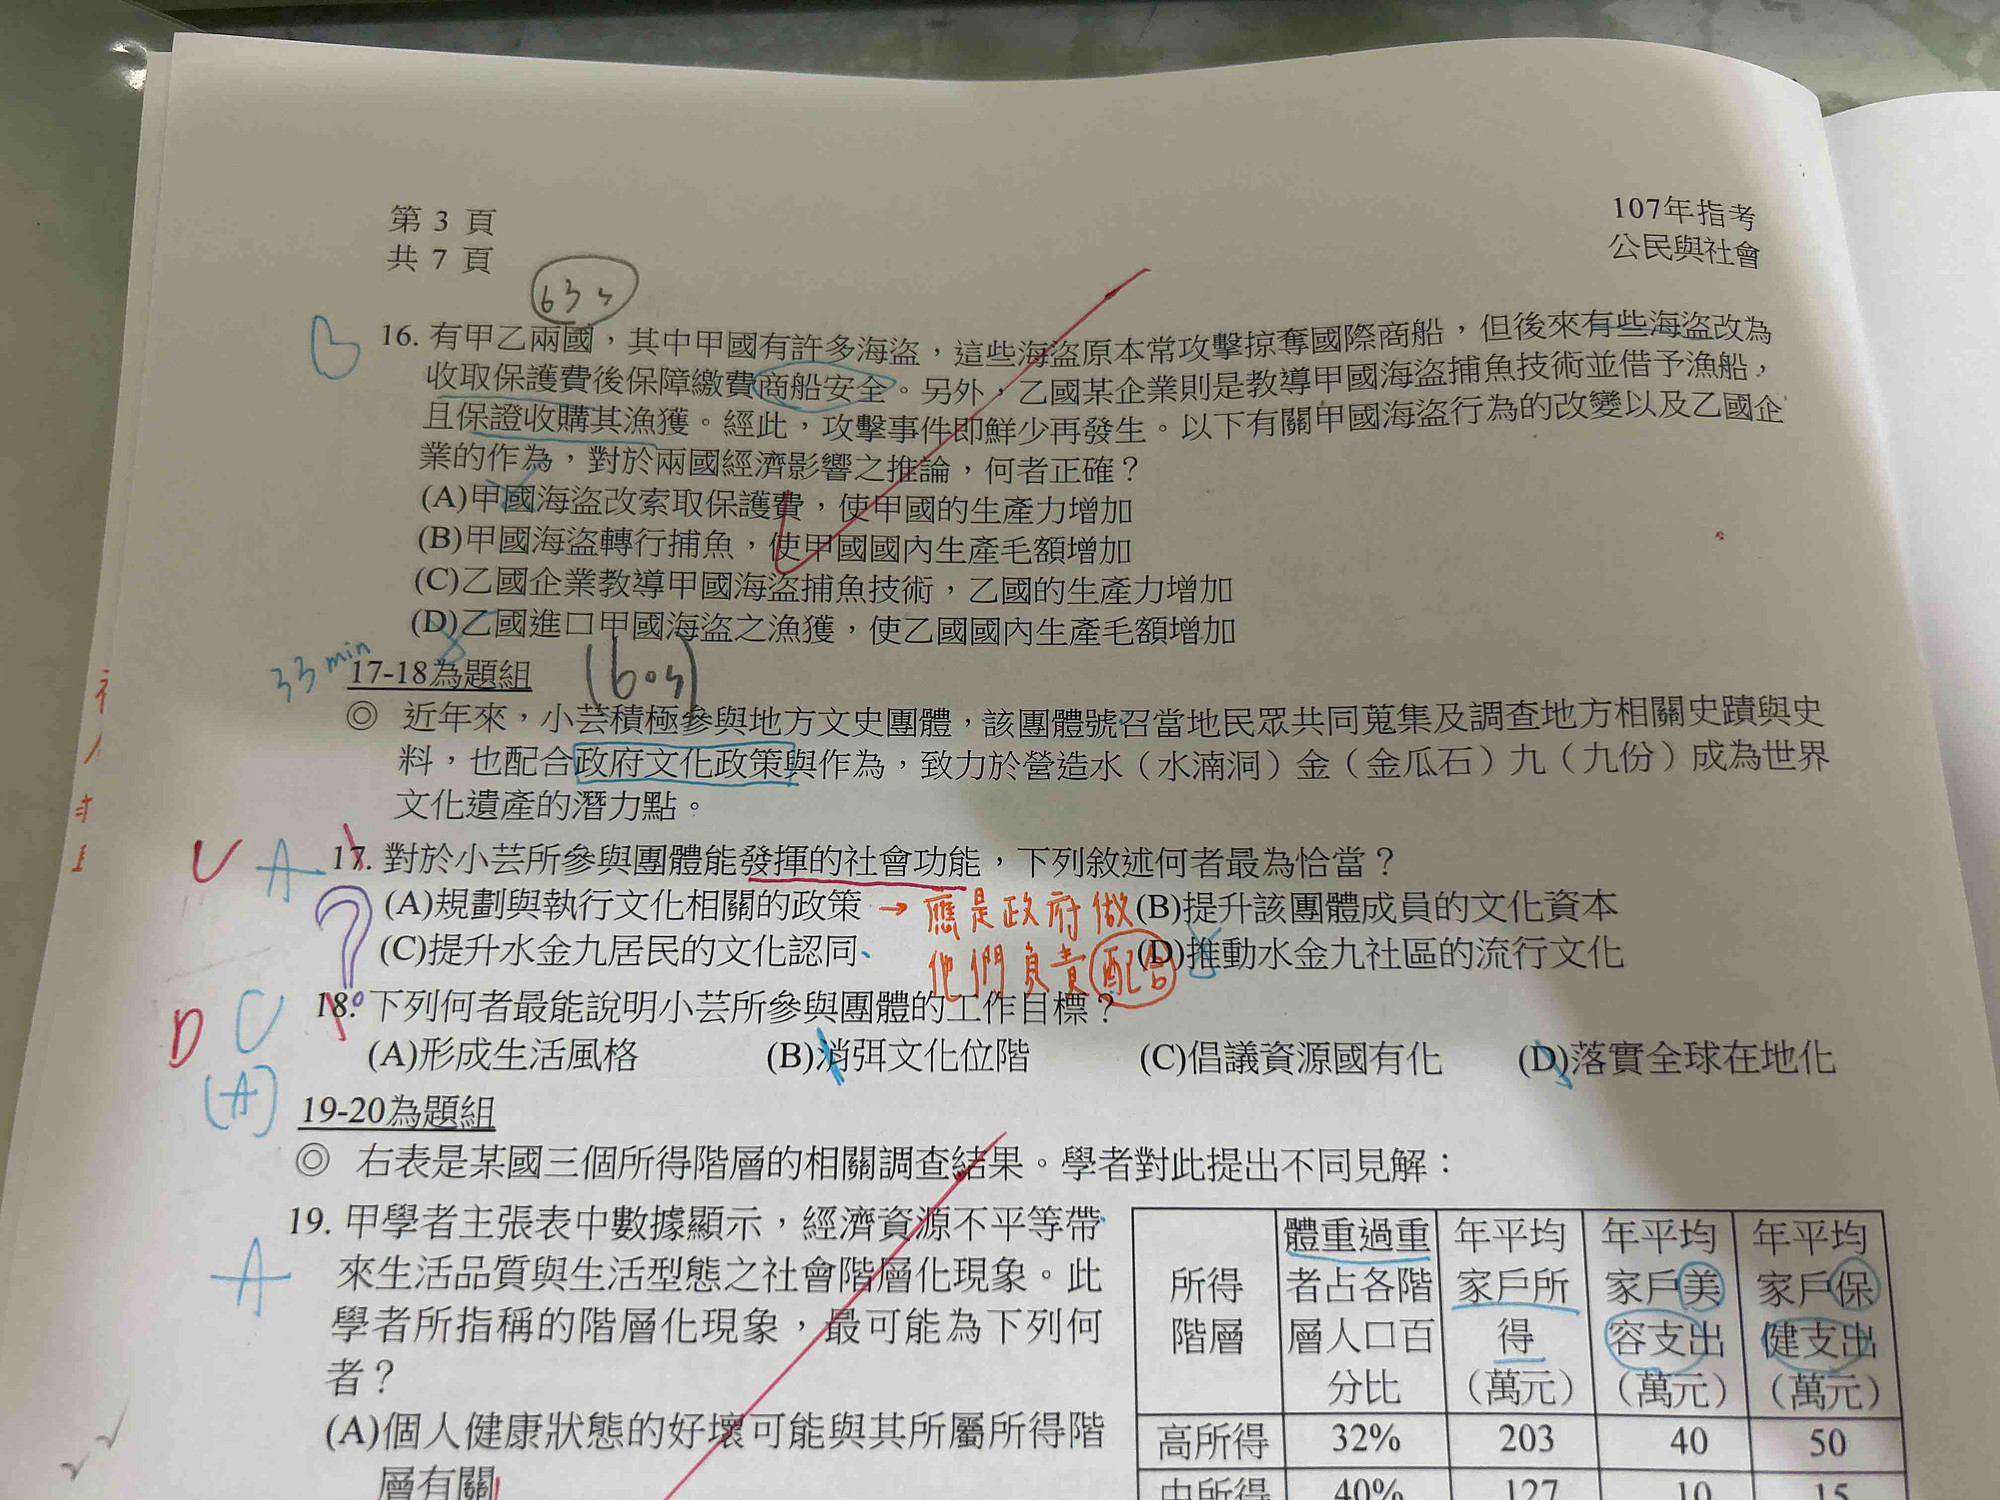 第 3 頁
共 7 頁
107年指考
公民與社會
B
16. 有甲乙兩國，其中甲國有許多海盜，這些海盜原本常攻擊掠奪國際商船，但後來有些海盜改為
收取保護費後保障繳費商船安全。另外，乙國某企業則是教導甲國海盜捕魚技術並借予漁船，
且保證收購其漁獲。經此，攻擊事件即鮮少再發生。以下有關甲國海盜行為的改變以及乙國企
業的作為，對於兩國經濟影響之推論，何者正確？
(A)甲國海盜改索取保護費，使甲國的生產力增加
(B)甲國海盜轉行捕魚，使甲國國內生產毛額增加
(C)乙國企業教導甲國海盜捕魚技術，乙國的生產力增加
(D)乙國進口甲國海盜之漁獲，使乙國國內生產毛額增加
33 min
17-18為題組
◎ 近年來，小芸積極參與地方文史團體，該團體號召當地民眾共同蒐集及調查地方相關史蹟與史
料，也配合政府文化政策與作為，致力於營造水（水湳洞）金（金瓜石）九（九份）成為世界
文化遺產的潛力點。
A
17. 對於小芸所參與團體能發揮的社會功能，下列敘述何者最為恰當？
(A)規劃與執行文化相關的政策 → 應是政府做 (B)提升該團體成員的文化資本
(C)提升水金九居民的文化認同 他們負責配合 (D)推動水金九社區的流行文化
?
D C
18. 下列何者最能說明小芸所參與團體的工作目標？
(A)形成生活風格 (B)消弭文化位階 (C)倡議資源國有化 (D)落實全球在地化
(A)
19-20為題組
◎ 右表是某國三個所得階層的相關調查結果。學者對此提出不同見解：
A
19. 甲學者主張表中數據顯示，經濟資源不平等帶
來生活品質與生活型態之社會階層化現象。此
學者所指稱的階層化現象，最可能為下列何
者？
(A)個人健康狀態的好壞可能與其所屬所得階
層有關
所得階層 體重過重者占各階層人口百分比 年平均家戶所得（萬元） 年平均家戶美容支出（萬元） 年平均家戶保健支出（萬元）
高所得 32% 203 40 50
中所得 40% 127 10 15